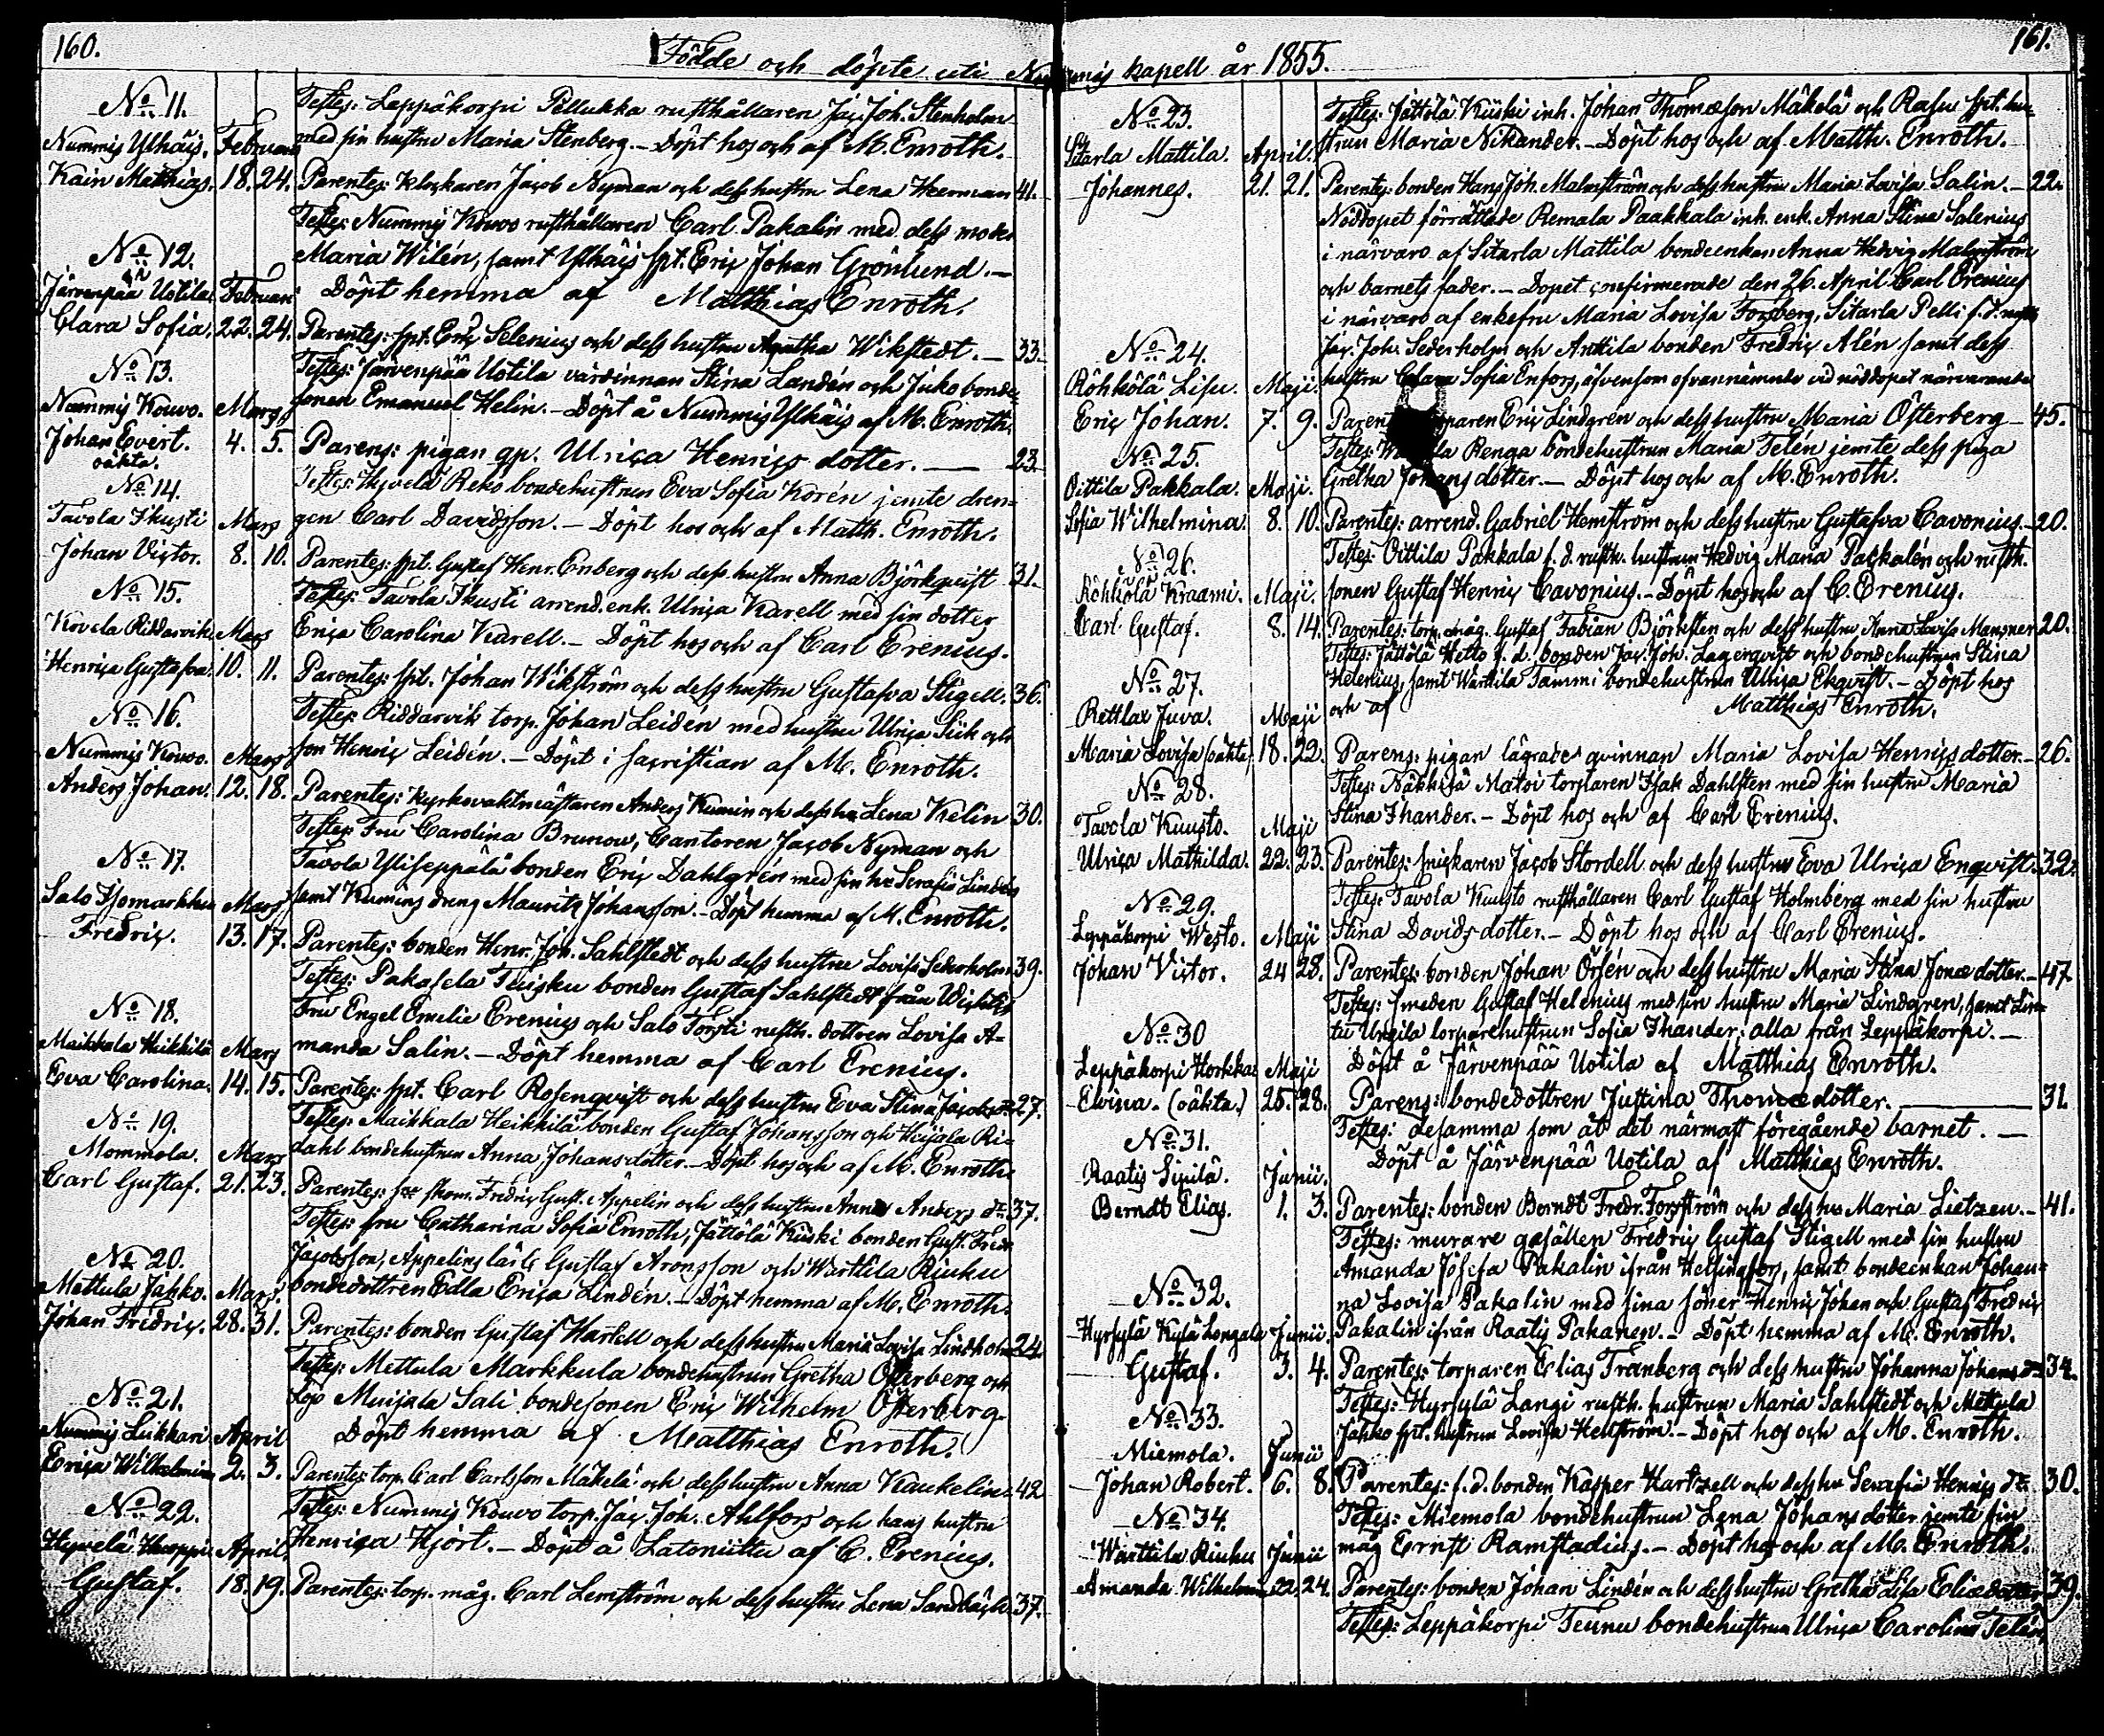 160.
Födde och döpte uti Nummis kapell år 1855.
161.
Testes: Leppäkorpi Pellukka rusthållaren Jac. Joh. Stenholm
No 11.
med sin hustru Maria Stenberg. – Döpt hos och af M. Enroth.
Nummis Ylhäis. Februari
Kain Matthias. 18. 24. Parentes: klockaren Jacob Nyman och dess hustru Lena Heerman 41.
Testes: Nummis Kouvo rusthållaren Carl Pakalin med dess moder
No 12.
Maria Wilén, samt Ylhäis spt. Eric Johan Grönlund. –
Järvenpää Uotila Februari
Döpt hemma af Matthias Enroth.
Clara Sofia. 22. 24. Parentes: spt. Eric Selenius och dess hustru Agatha Wikstedt. – 33.
No 13.
Testes: Järvenpää Uotila värdinnan Stina Landén och Juko bonde-
Nummis Kouvo. Mars
sonen Emanuel Helin. – Döpt å Nummis Ylhäis af M. Enroth.
Johan Evert. 4. 5. Parens: pigan gp. Ulrica Henrics dotter. – 23.
oäkta.
No 14.
Testes: Hyvelä Reko bondehustrun Eva Sofia Korén jemte dren-
Tavola Ikusti Mars
gen Carl Davidsson. – Döpt hos och af Matth. Enroth.
Johan Victor. 8. 10. Parentes: spt. Gustaf Henr. Enberg och dess hustru Anna Björkqvist 31.
No 15.
Testes: Tavola Ikusti arrend. enk. Ulrica Karell med sin dotter
Riddarvik. Mars
Erica Carolina Karell. – Döpt hos och af Carl Erenius.
Henrica Gustafva. 10. 11. Parentes: spt. Johan Wikström och dess hustru Gustafva Stigell. 36.
No 16.
Testes: Riddarvik torp. Johan Leidén med hustru Ulrica Siik och
Nummis Kouvo. Mars
son Henric Leidén. – Döpt i sacristian af M. Enroth.
Anders Johan. 12. 18. Parentes: Kyrkovaktmästaren Anders Kumin och dess hu Lena Kelin 30.
Testes: Fru Carolina Brunow, Cantoren Jacob Nyman och
No 17.
Tavola Yliseppälä bonden Eric Dahlgrén med sin hu Serafia Lindén
Salo Isomarkku Mars
samt Kumins dräng Mauritz Johansson. – Döpt hemma af M. Enroth.
Fredric. 13. 17. Parentes: bonden Henr. Joh. Sahlstedt och dess hustru Lovisa Sederholm 39.
Testes: Pakasela Tuisku bonden Gustaf Sahlstedt från Wichtis
No 18.
Fru Engel Emelie Erenius och Salo Torsti rusth. dottren Lovisa A-
Maikkala Heikkilä Mars
manda Salin. – Döpt hemma af Carl Erenius.
Eva Carolina. 14. 15. Parentes: spt. Carl Rosenqvist och dess hustru Eva Stina Jacobs dr 27.
No 19.
Testes: Maikkala Heikkilä bonden Gustaf Johansson och Heijala Ri-
Mommola. Mars
dahl bondehustrun Anna Johansdotter. – Döpt hos och af M. Enroth.
Carl Gustaf. 21. 23. Parentes: skom. Fredric Gust. Äppelin och dess hustru Anna Anders dr 37.
Testes: fru Catharina Sofia Enroth, Jättölä Kiiski bonden Gust. Fredr.
No 20.
Jacobsson, Äppelins lärl. Gustaf Aronsson och Warttila Riuku
Mettula Jahko. Mars.
bondedottren Edla Erica Lindén. – Döpt hemma af M. Enroth.
Johan Fredric. 28. 31. Parentes: bonden Gustaf Hartell och dess hustru Maria Lovisa Lindholm 24.
Testes: Mettula Markkula bondehustrun Gretha Österberg och
No 21.
Lojo Muijala Sali bondesonen Eric Wilhelm Österberg.
Nummis Lukkari April
Döpt hemma af Matthias Enroth.
Erica Wilhelmina 2. 3. Parentes: torp. Carl Carlsson Mäkelä och dess hustru Anna Kaukelin. 42
No 22.
Testes: Nummis Kouvo torp. Jac. Joh. Ahlfors och hans hustru
Hyvelä April.
Henrica Hjort. – Döpt å Latoniittu af C. Erenius.
Gustaf. 18. 19. Parentes: torp. måg. Carl Lemström och dess hustru Lena Sandbäck. 37.
No 23.
Testes: Jättölä Kiiski inh. Johan Thomasson Mäkelä och Rasu spt. hu-
Sitarla Mattila. April.
strun Maria Nikander. – Döpt hos och af Matth. Enroth.
Johannes. 21. 21. Parentes: bonden Hans Joh. Malmström och dess hustru Maria Lovisa Salin. – 22.
Nöddopet förrättade Remala Paakkala inh. enk. Anna Stina Salenius
i närvaro af Sitarla Mattila bondeenkan Anna Hedvig Malmström
och barnets fader. – Dopet confirmerade den 26 April Carl Erenius
i närvaro af enkefru Maria Lovisa Forsberg, Sitarla Pelli f. d. rusth.
No 24.
Jac. Joh. Sederholm och Anttila bonden Fredric Alén samt dess
Röhkölä Lisu. Maji.
hustru Clara Sofia Enfors, äfvensom ofvannämnde vid nöddopet närvarande
Eric Johan. 7. 9. Eric Lindgrén och dess hustru Maria Österberg – 45.
No 25.
Testes: Renga bondehustrun Maria Telén jemte dess piga
Oittila Pakkala. Maji.
Gretha Johans dotter. – Döpt hos och af M. Enroth.
Sofia Wilhelmina. 8. 10. Parentes: arrend. Gabriel Hemström och dess hustru Gustafva Cavonius. – 20.
No 26.
Testes: Oittila Pakkala f. d. rusth. hustrun Hedvig Maria Packalén och rusth.
Röhkölä Kraami. Maji.
sonen Gustaf Henric Cavonius. – Döpt hos och af C. Erenius.
Carl Gustaf. 8. 14. Parentes: torp. måg. Gustaf Fabian Björksten och dess hustru Anna Lovisa Mansner 20.
Testes: Jättölä Hetto f. d. bonden Jac. Joh. Lagerqvist och bondehustrun Stina
No 27.
Helenius, samt Warttila Tammi bondehustrun Ulrica Ekqvist. – Döpt hos
Rettlax Juva. Maji
och af Matthias Enroth.
Maria Lovisa (oäkta) 18. 22. Parens: pigan lägrade qvinnan Maria Lovisa Henrics dotter. – 26.
No 28.
Testes: Näkkilä Matoi torparen Isak Dahlsten med sin hustru Maria
Tavola Kuusto. Maji
Stina Ihander. – Döpt hos och af Carl Erenius.
Ulrica Mathilda. 22. 23. Parentes: snickaren Jacob Stordell och dess hustru Eva Ulrica Enqvist. – 32.
No 29.
Testes: Tavola Kuusto rusthållaren Carl Gustaf Holmberg med sin hustru
Leppäkorpi Westo. Maji
Stina Davidsdotter. – Döpt hos och af Carl Erenius.
Johan Victor. 24 28. Parentes: bonden Johan Örsén och dess hustru Maria Stina Jonæ dotter. – 47
Testes: smeden Gustaf Helenius med sin hustru Maria Lindgren, samt Lin-
No 30
tu Uncila torparehustrun Sofia Ihander; alla från Leppäkorpi. –
Leppäkorpi Horkka Maji
Döpt å Järvenpää Uotila af Matthias Enroth.
Elvina. (oäkta.) 25. 28. Parens: bondedottren Justina Thomædotter. – 31.
No 31.
Testes: desamma som åt det närmast föregående barnet. –
Raatis Sipilä. Junii.
Döpt å Järvenpää Uotila af Matthias Enroth.
Berndt Elias. 1. 3. Parentes: bonden Berndt Fredr. Forsström och dess hu Maria Lietzen. – 41.
Testes: murare gesällen Fredric Gustaf Stigell med sin hustru
Amanda Josefa Pakalin ifrån Helsingfors, samt bondeenkan Johan-
No 32.
na Lovisa Pakalin med sina söner Henric Johan och Gustaf Fredric
Hyrsylä Kylä Longala Junii.
Pakalin ifrån Raatis Pakanen. – Döpt hemma af M. Enroth.
Gustaf. 3. 4. Parentes: torparen Elias Tranberg och dess hustru Johanna Johans dr 34.
Testes: Hyrsylä Langi rusth. hustrun Maria Sahlstedt och Mettula
No 33.
Jahko spt. hustrun Lovisa Hellström. – Döpt hos och af M. Enroth.
Miemola. Junii
Johan Robert. 6. 8. Parentes: f. d. bonden Kasper Hartzell och dess hu Serafia Henrics dr 30.
No 34.
Testes: Miemola bondehustrun Lena Johans dotter jemte sin
Warttila Riuku Junii
måg Ernst Ramstadius. – Döpt hos och af M. Enroth.
Amanda Wilhelmina 22. 24. Parentes: bonden Johan Lindén och dess hustru Gretha Lisa Eliædotter 39.
Testes: Leppäkorpi Teunu bondehustrun Ulrica Carolina Telén,